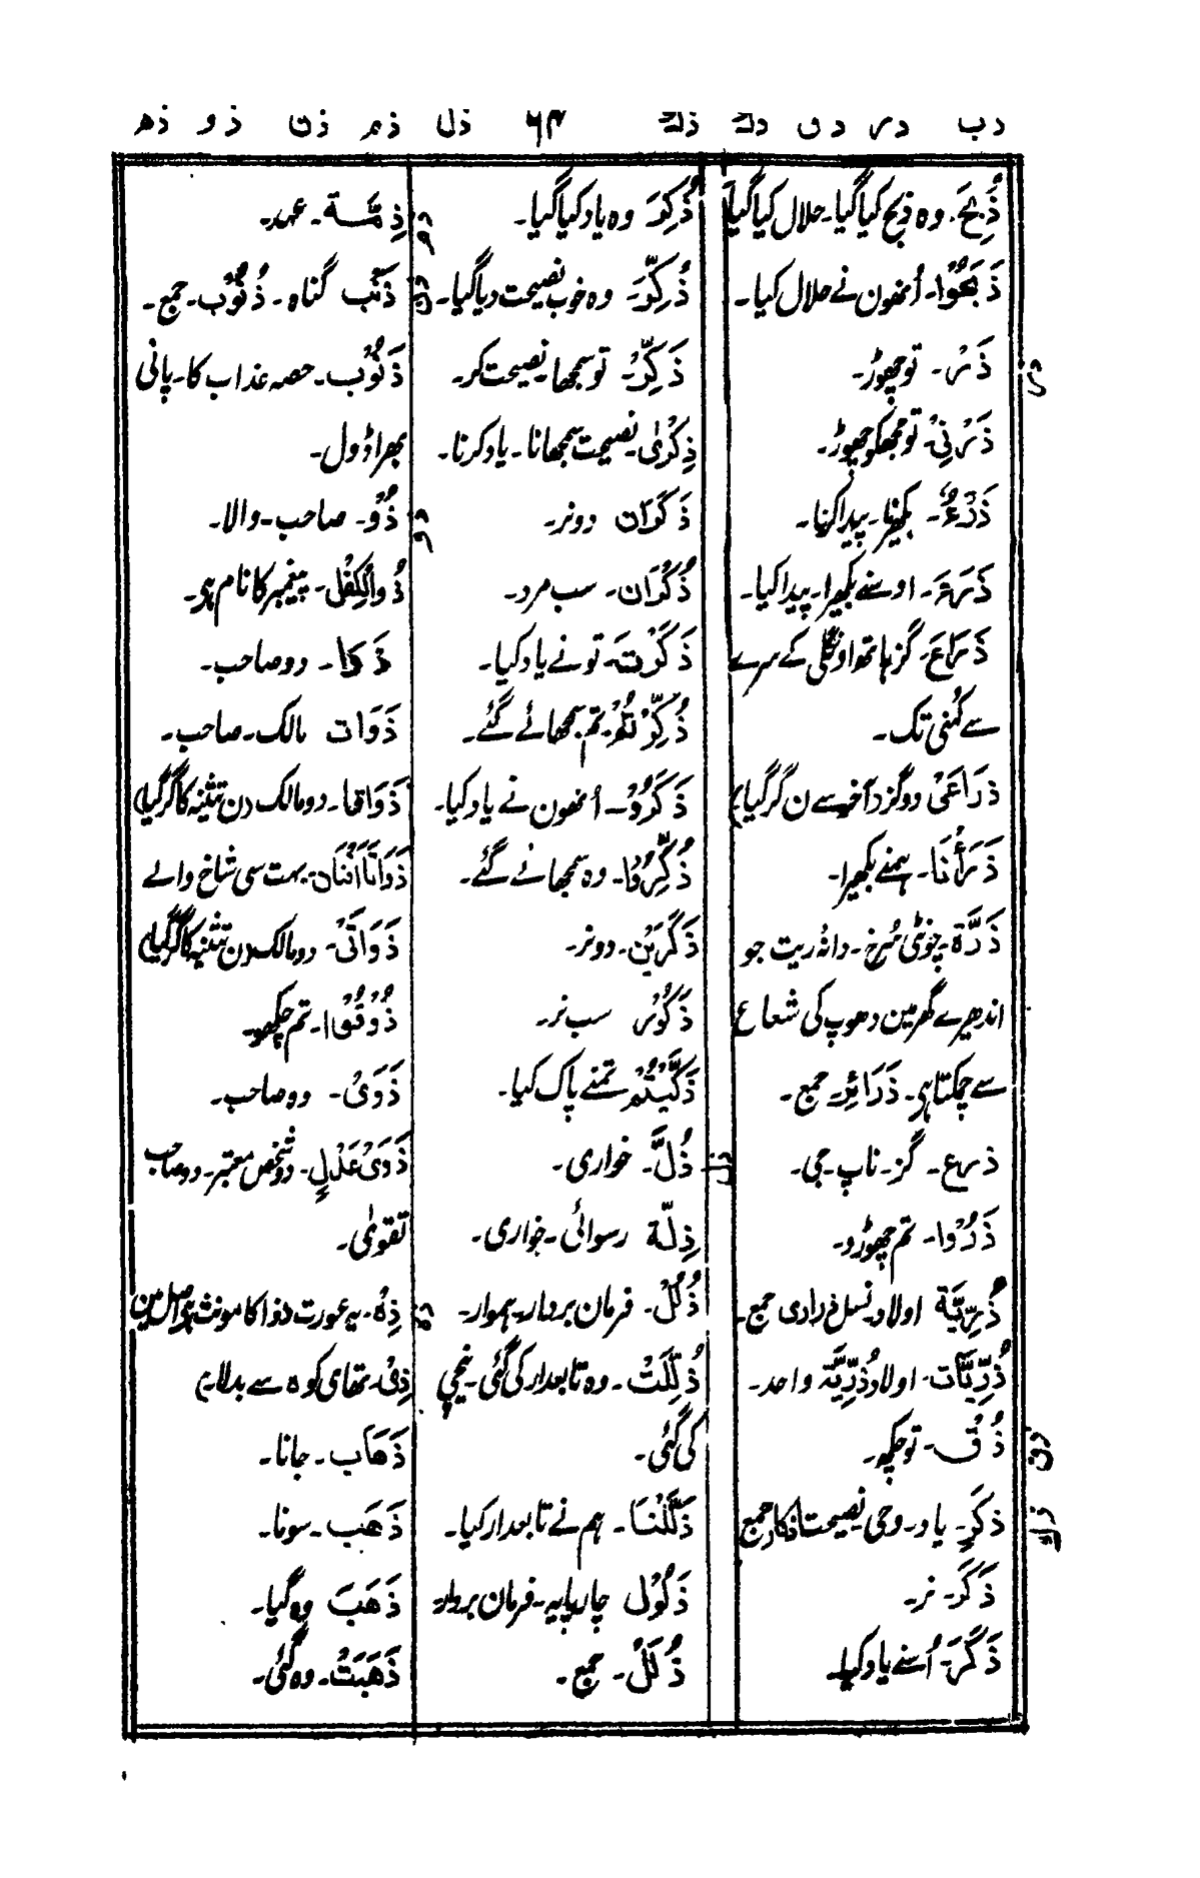 ذب ذر ذق ذك ذك ۶۴ ذل ذم ذن ذو ذھ
ذُبِحَ۔ وہ ذبح کیا گیا۔ حلال کیا گیا
ذَبَحُوْا۔ اُنھون نے حلال کیا۔
ذَرْ۔ تو چھوڑ۔
ذر
ذَرْنِیْ۔ تو مجھکو چھوڑ۔
ذَرْءٌ۔ بکھیرنا۔ پیدا کرنا۔
ذَرَءَ۔ اوسنے بکھیرا۔ پیدا کیا۔
ذَرَاعَ۔ گز ہاتھ اونگلی کے سرے
سے کُہنی تک۔
ذَرَاعَیْ دو گز دآخر سے ن گر گیا)
ذَرَأْنَا۔ ہمنے بکھیرا۔
ذَرَّة۔ چونٹی سُرخ۔ دانہ ریت جو
اندھیرے گھر مین دھوپ کی شعاع
سے چمکتا ہی۔ ذَرَائِر۔ جمع۔
ذرع۔ گز۔ ناپ۔ جی۔
ذَرُوْا۔ تم چھوڑو۔
ذُرِّیَّة اولاد۔ نسل ذراری جمع۔
ذُرِّیَّات۔ اولاد ذُرِّیَّة واحد۔
ذُقْ۔ تو چکھ۔
ذق
ذکَر۔ یاد۔ وحی نصیحت اذکار جمع
ذك
ذَکَر۔ نر۔
ذَکَرَ۔ اُسنے یاد کیا۔
ذُکِرَ وہ یاد کیا گیا۔
ذُکِّرَ۔ وہ خوب نصیحت دیا گیا۔
ذَکِّرْ۔ تو سمجھا۔ نصیحت کر۔
ذِکْرٰی۔ نصیحت سمجھانا۔ یاد کرنا۔
ذَکَرَان دو نر۔
ذُکْرَان۔ سب مرد۔
ذَکَرْتَ۔ تو نے یاد کیا۔
ذُکِّرْتُمْ۔ تم سمجھائے گئے۔
ذَکَرُوْا۔ اُنھون نے یاد کیا۔
ذُکِّرُوْا۔ وہ سمجھانے گئے۔
ذَکَرَیْن۔ دو نر۔
ذَکُوْر سب نر۔
ذَکَّیْتُمْ تمنے پاک کیا۔
ذُلَّ۔ خواری۔
ذل
ذِلَّة رسوائی۔ خواری۔
ذُلُلْ۔ فرمان بردار۔ ہموار۔
ذُلِّلَتْ۔ وہ تابعدار کی گئی۔ نیچی
کی گئی۔
ذَلَّلْنَا۔ ہم نے تابعدار کیا۔
ذَلُوْل چارپایہ۔ فرمان بردار
ذُلُلْ۔ جمع۔
ذِمَّة۔ عہد۔
ذم
ذَنْب گناہ۔ ذُنُوْب۔ جمع۔
ذن
ذَنُوْب۔ حصہ عذاب کا۔ پانی
بھرا ڈول۔
ذُوْ۔ صاحب۔ والا۔
ذو
ذُو الْکِفْل۔ پیغمبر کا نام ہی۔
ذَوَا۔ دو صاحب۔
ذَوَات مالک۔ صاحب۔
ذَوَاتَا۔ دو مالک دن تثنیہ کا گر گیا)
ذَوَاتَا اَفْنَان۔ بہت سی شاخ والے
ذَوَاتَیْ۔ دو مالک دن تثنیہ کا گر گیا)
ذُوْقُوْا۔ تم چکھو۔
ذَوَیْ۔ دو صاحب۔
ذَوَیْ عَدْلٍ۔ دو شخص معتبر۔ دو صاحب
تقویٰ۔
ذِہ۔ یہ عورت ذوا کا مونث ہی اصل مین
ذہ
ذِیْ۔ تھا ی کو ہ سے بدلا ہی
ذَھَاب۔ جانا۔
ذَھَب۔ سونا۔
ذَھَبَ وہ گیا۔
ذَھَبَتْ۔ وہ گئی۔